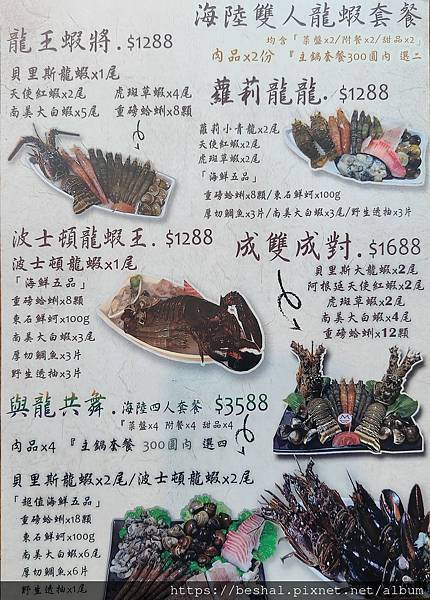 海陸雙人龍蝦套餐
均含「菜盤x2/附餐x2/甜品x2」
肉品x2份 『主鍋套餐300圓內 選二
龍王蝦將.$1288
貝里斯龍蝦x1尾
天使紅蝦x2尾 虎斑草蝦x4尾
南美大白蝦x5尾 重磅蛤蜊x8顆
蘿莉龍龍.$1288
蘿莉小青龍x2尾
天使紅蝦x2尾
虎斑草蝦x2尾
「海鮮五品」
重磅蛤蜊x8顆/東石鮮蚵x100g
厚切鯛魚x3片/南美大白蝦x3尾/野生透抽x3片
波士頓龍蝦王.$1288
波士頓龍蝦x1尾
「海鮮五品」
重磅蛤蜊x8顆
東石鮮蚵x100g
南美大白蝦x3尾
厚切鯛魚x3片
野生透抽x3片
成雙成對.$1688
貝里斯大龍蝦x2尾
阿根廷天使紅蝦x2尾
虎斑草蝦x2尾
南美大白蝦x4尾
重磅蛤蜊x12顆
與龍共舞.海陸四人套餐 $3588
『菜盤x4 附餐x4 甜品x4
肉品x4 『主鍋套餐 300圓內 選四
貝里斯龍蝦x2尾/波士頓龍蝦x2尾
「超值海鮮五品」
重磅蛤蜊x18顆
東石鮮蚵x100g
南美大白蝦x6尾
厚切鯛魚x6片
野生透抽x1尾
https://beshal.pixnet.net/album